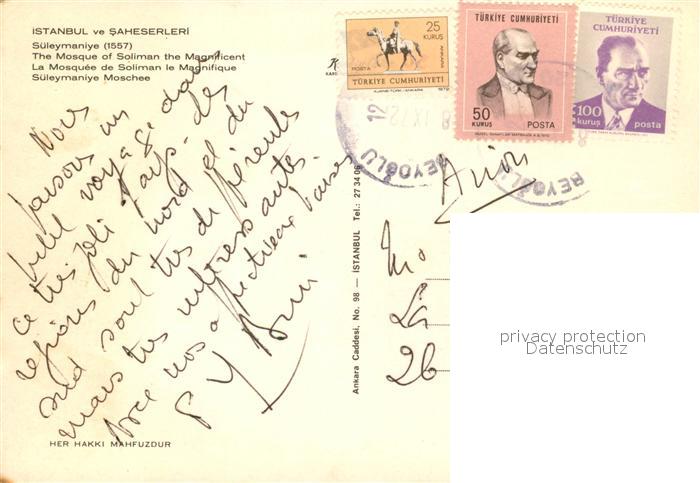 İSTANBUL ve ŞAHESERLERİ
Süleymaniye (1557)
The Mosque of Soliman the Magnificent
La Mosquée de Soliman le Magnifique
Süleymaniye Moschee
25
KURUŞ
POSTA
ANKARA
TÜRKİYE CUMHURİYETİ
TÜRKİYE CUMHURİYETİ
50
KURUŞ
POSTA
TÜRKİYE
CUMHURİYETİ
100
kuruş
posta
BEYOĞLU
BEYOĞLU
Avion
Nous
faisons un
petit voyage dans
ce très joli pays - des
régions du nord et du
sud sont très différentes
mais très intéressantes
avec nos affectueux baisers
Ankara Caddesi, No. 98 — İSTANBUL Tel.: 27 34 06
26
privacy protection
Datenschutz
HER HAKKI MAHFUZDUR